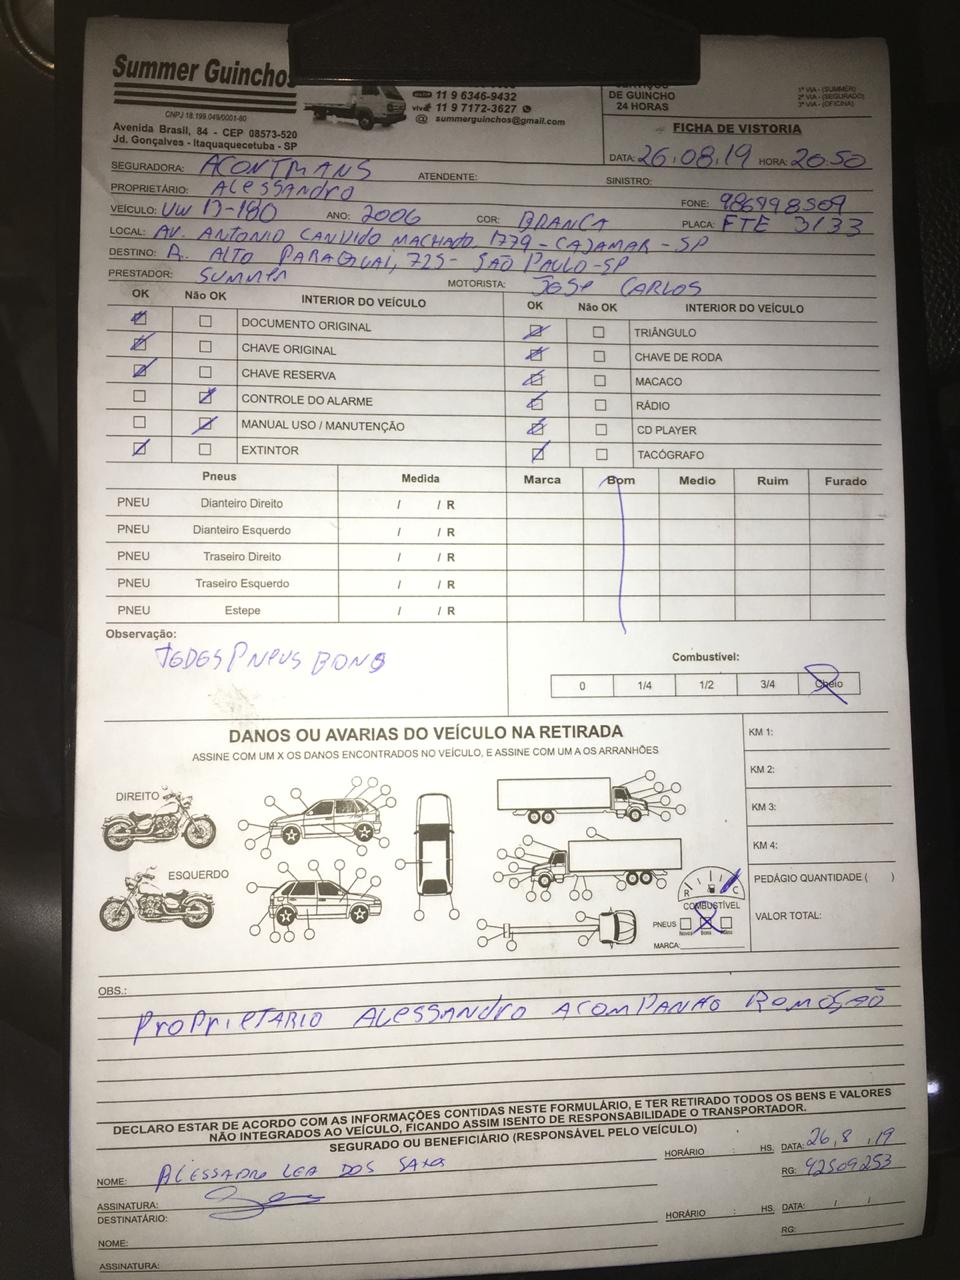 Summer Guinchos
CNPJ 18.199.049/0001-60
Avenida Brasil, 84 - CEP 08573-520
Jd. Gonçalves - Itaquaquecetuba - SP
11 9 6346-9432
vivo 11 9 7172-3627
@ summerguinchos@gmail.com
DE GUINCHO
24 HORAS
1ª VIA - (SUMMER)
2ª VIA - (SEGURADO)
3ª VIA - (OFICINA)
FICHA DE VISTORIA
DATA: 26.08.19 HORA: 20:50
SEGURADORA: ACONTMANS ATENDENTE: SINISTRO:
PROPRIETÁRIO: Alessandro FONE:
VEÍCULO: UW 13-180 ANO: 2006 COR: BRANCA PLACA: FTE 3133
LOCAL: AV. ANTONIO CANDIDO MACHADO, 1779 - CAJAMAR - SP
DESTINO: R. ALTO PARAGUAI, 725 - SÃO PAULO - SP
PRESTADOR: SUMMER MOTORISTA: JOSE CARLOS
OK Não OK INTERIOR DO VEÍCULO OK Não OK INTERIOR DO VEÍCULO
DOCUMENTO ORIGINAL TRIÂNGULO
CHAVE ORIGINAL CHAVE DE RODA
CHAVE RESERVA MACACO
CONTROLE DO ALARME RÁDIO
MANUAL USO / MANUTENÇÃO CD PLAYER
EXTINTOR TACÓGRAFO
Pneus Medida Marca Bom Medio Ruim Furado
PNEU Dianteiro Direito / / R
PNEU Dianteiro Esquerdo / / R
PNEU Traseiro Direito / / R
PNEU Traseiro Esquerdo / / R
PNEU Estepe / / R
Observação:
TODOS PNEUS BONS
Combustível:
0 1/4 1/2 3/4 Cheio
DANOS OU AVARIAS DO VEÍCULO NA RETIRADA
ASSINE COM UM X OS DANOS ENCONTRADOS NO VEÍCULO, E ASSINE COM UM A OS ARRANHÕES
KM 1:
KM 2:
KM 3:
KM 4:
DIREITO
ESQUERDO
PEDÁGIO QUANTIDADE ( )
VALOR TOTAL:
R C
COMBUSTÍVEL
PNEUS
Novos Bons
MARCA:
OBS.:
PROPRIETARIO ALESSANDRO ACOMPANHO ROMOÇÃO
DECLARO ESTAR DE ACORDO COM AS INFORMAÇÕES CONTIDAS NESTE FORMULÁRIO, E TER RETIRADO TODOS OS BENS E VALORES
NÃO INTEGRADOS AO VEÍCULO, FICANDO ASSIM ISENTO DE RESPONSABILIDADE O TRANSPORTADOR.
SEGURADO OU BENEFICIÁRIO (RESPONSÁVEL PELO VEÍCULO)
HORÁRIO : HS. DATA: 26,8,19
NOME: ALESSADRO LEA DOS RG: 42509253
ASSINATURA:
DESTINATÁRIO: HORÁRIO : HS. DATA: / /
NOME: RG:
ASSINATURA: